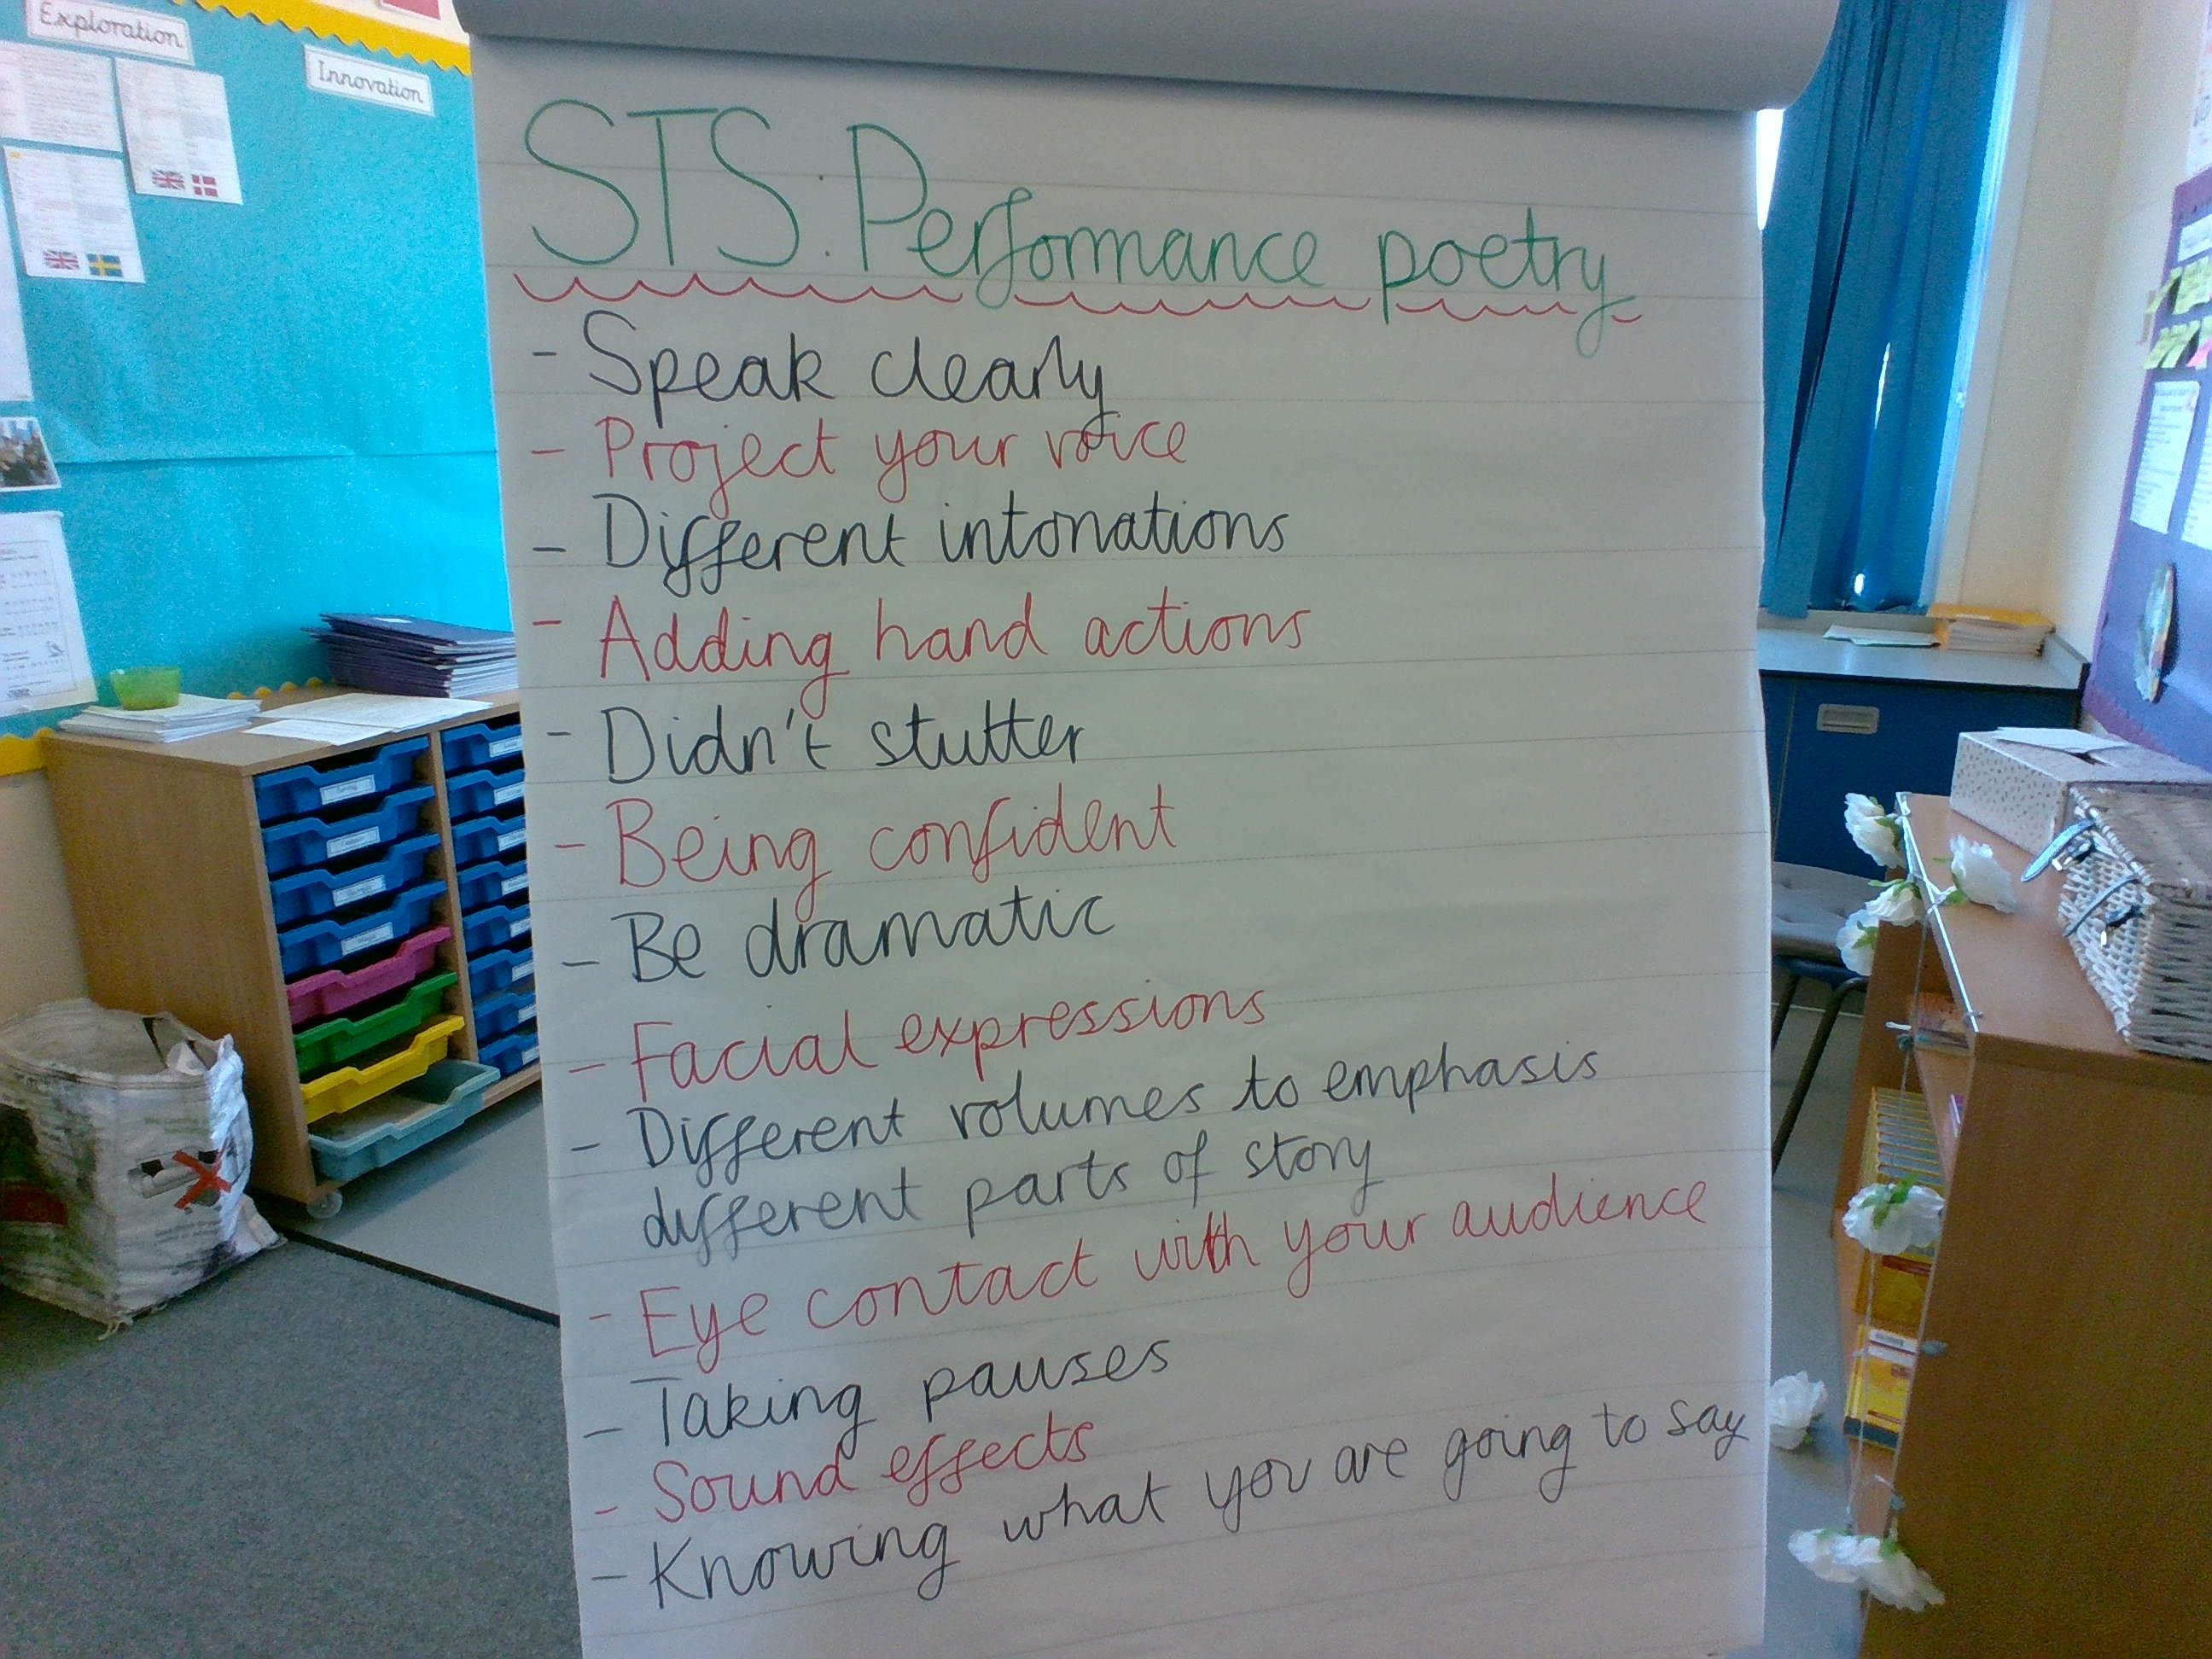 Exploration
Innovation
STS: Performance poetry
- Speak clearly
- Project your voice
- Different intonations
- Adding hand actions
- Didn't stutter
- Being confident
- Be dramatic
- Facial expressions
- Different volumes to emphasis
different parts of story
- Eye contact with your audience
- Taking pauses
- Sound effects
- Knowing what you are going to say